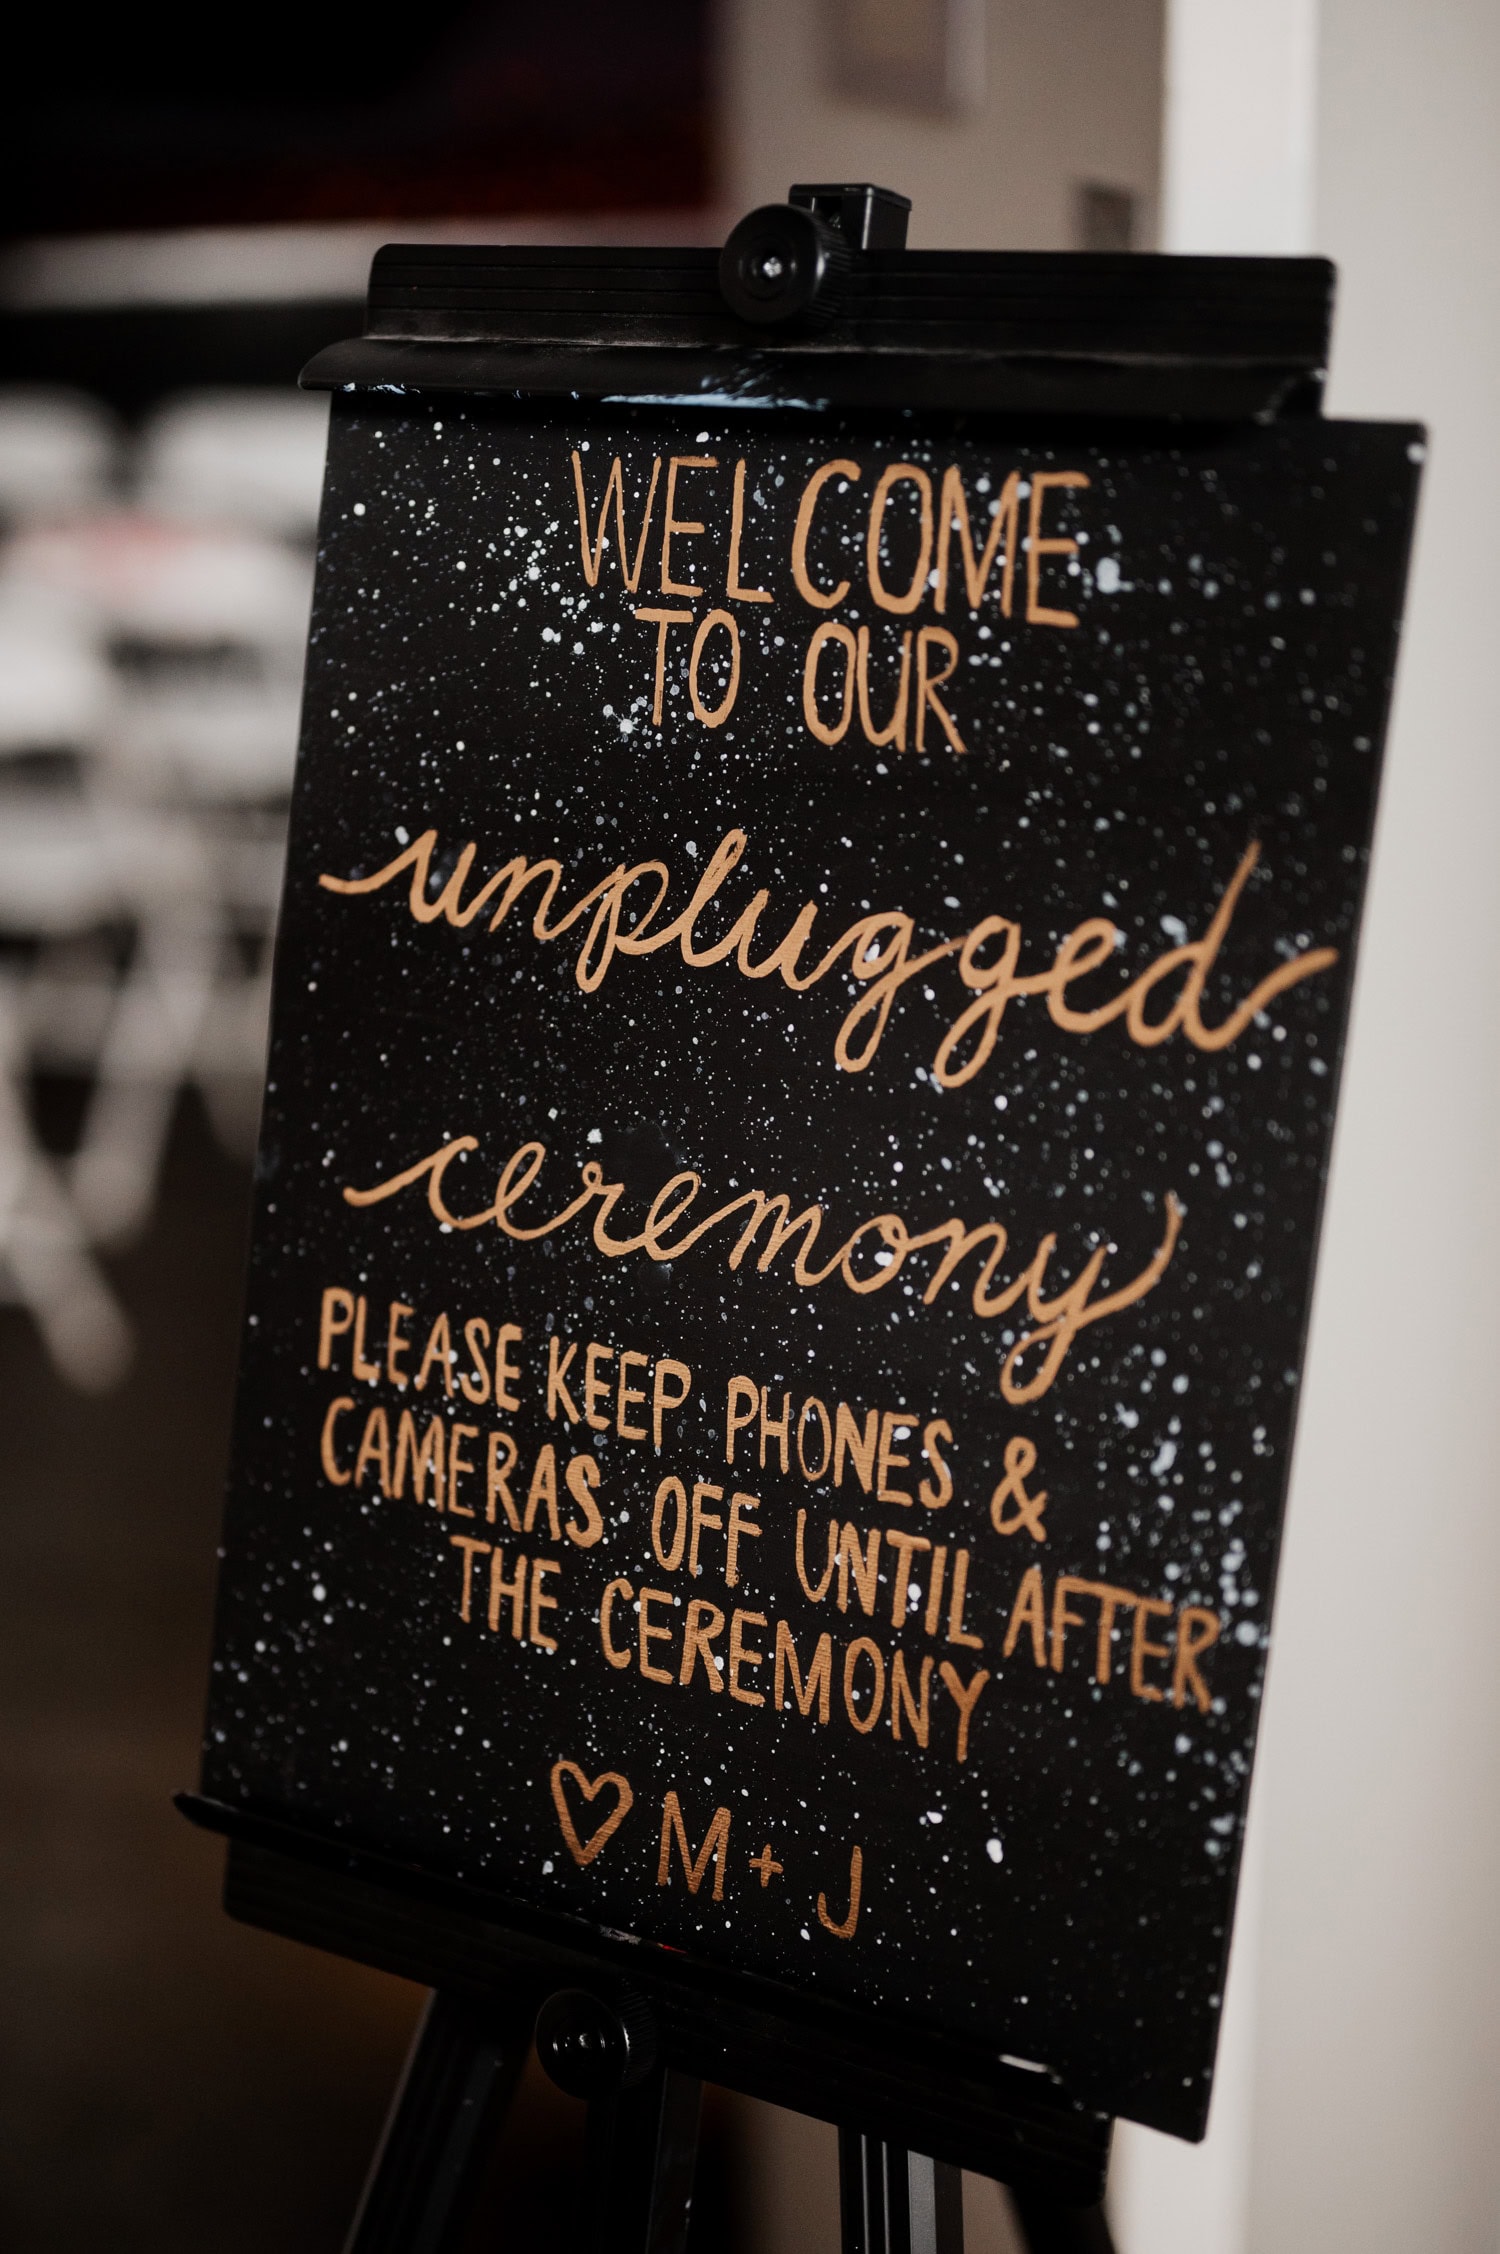 WELCOME
TO OUR
unplugged
ceremony
PLEASE KEEP PHONES &
CAMERAS OFF UNTIL AFTER
THE CEREMONY
♡ M + J